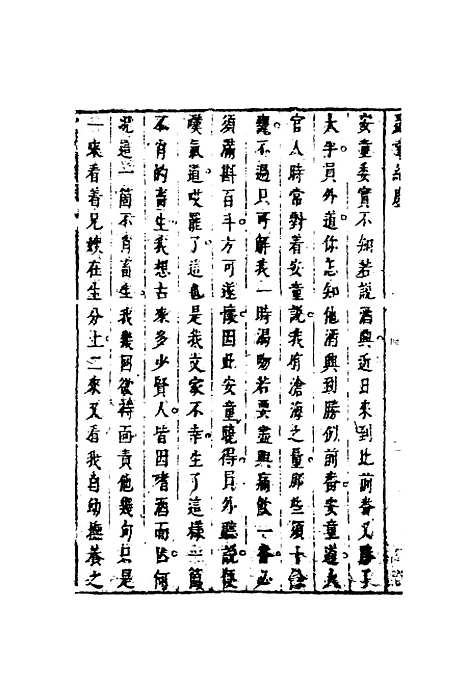 安童委實不知若說酒興近日來到比前番又勝了
大半員外道你怎知他酒興到勝似前番安童道大
官人時常對着安童說我有滄海之量那些須十餘
甕不過只可解我一時渴吻若要盡興痛飲一番必
須滿斟百斗方可遂懷因此安童曉得員外聽說便
嘆氣道哎罷了這也是我文家不幸生了這樣一箇
不肖的畜生我想古來多少賢人皆因嗜酒而亡何
況這一箇不肖畜生我幾回欲待面責他幾句只是
一來看着兄嫂在生分上二來又看我自幼撫養之